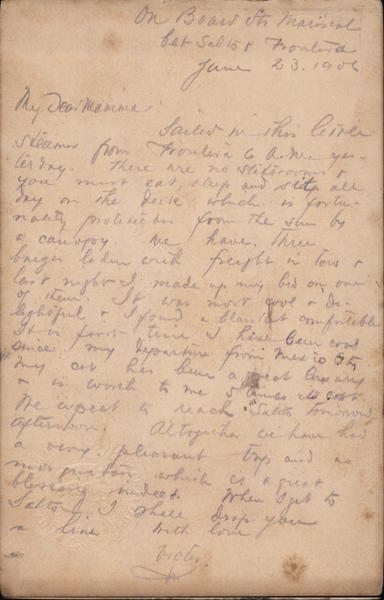 On Board Str Mariscal
bet Salto & Frontera
June 23. 1906
My Dear Mamma:
Sailed in this little
steamer from Frontera 6 A.M. yes-
terday. There are no staterooms &
you must eat, sleep and sit all
day on the deck which is fortu-
nately protected from the sun by
a canopy. We have three
barges laden with freight in tow &
last night I made up my bed on one
of them. It was most cool & de-
lightful & I found a blanket comfortable
It is first time I have been cool
since my departure from Mexico
My cot has been a great luxury
& is worth to me 5 times its cost
We expect to reach Salto tomorrow
afternoon. Altogether we have had
a very pleasant trip and no
mosquitoes which is a great
blessing indeed. When I get to
Salto I shall drop you
a line With love
Victor.